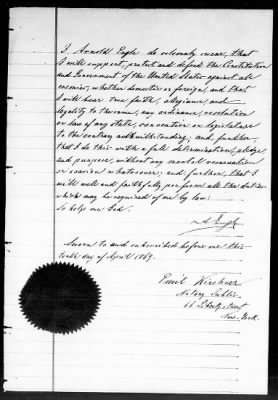 I, Arnold Engle do solemnly swear, that
I will support, protect and defend the Constitution
and Government of the United States against all
enemies, whether domestic or foreign, and that
I will bear true faith, allegiance, and
loyalty to the same, any ordinance, resolution
or law of any state, convention or legislature
to the contrary notwithstanding; and, further,
that I do this with a full determination, pledge
and purpose, without any mental reservation
or evasion whatsoever; and, further, that I
will well and faithfully perform all the duties
which may be required of me by law:
So help me God.
A Engle
Sworn to and subscribed before me this
day of April 1869.
Emil
Notary Public
66 Liberty Street
New-York.